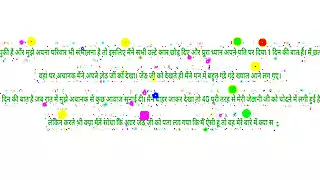 चुकी है और मुझे अपना परिवार भी संभालना है तो इसलिए मैंने सभी उल्टे काम छोड़ दिए और पूरा ध्यान अपने पति पर दिया 1 दिन की बात है। मैं छत
वहां पर अचानक मैंने अपने जेठ जी को देखा। जेठ जी को देखते ही मेरे मन में बहुत गंदे गंदे ख्याल आने लग गए।
दिन की बात है जब रात में मुझे अचानक से कुछ आवाज सुनाई दी। मैंने बाहर जाकर देखा तो 40 पूरी तरह से मेरी जेठानी जी को चोदने में लगी हुई है
लेकिन करते भी क्या मैंने सोचा कि अगर जेठ जी को पता लग गया कि मैं ऐसी हूं तो वह मेरे बारे में क्या स